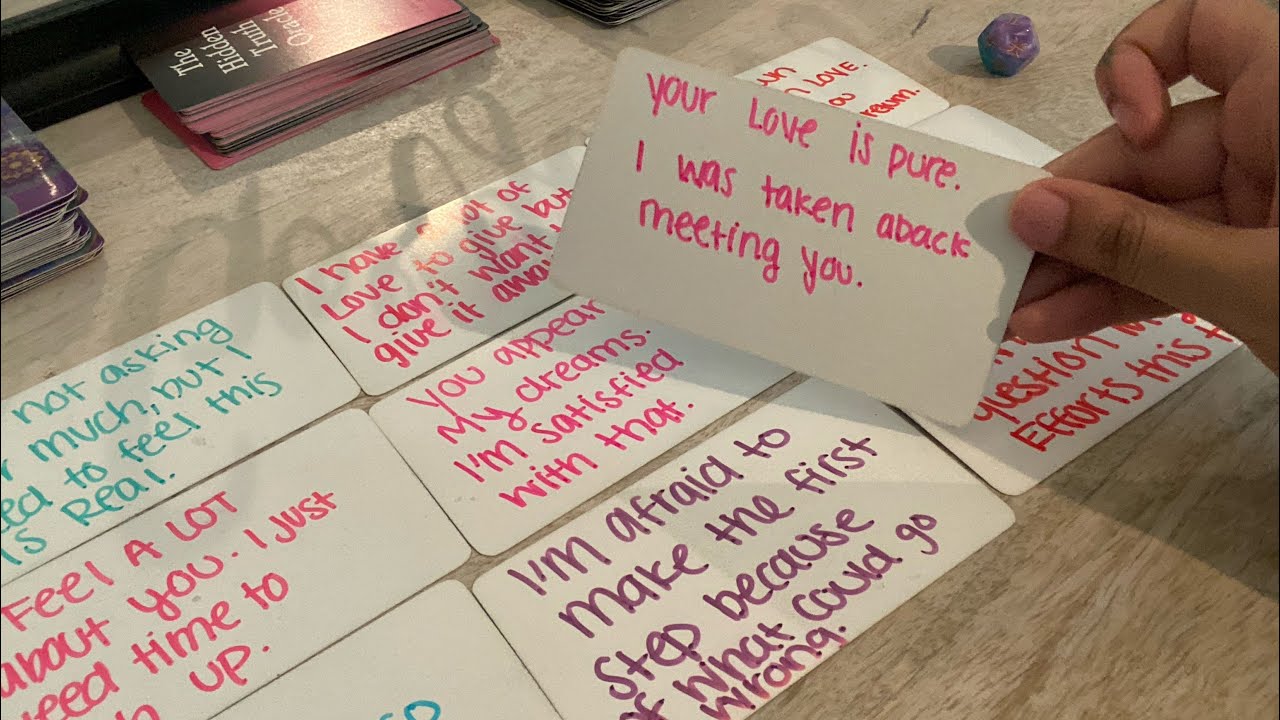 The
Hidden
Truth
Oracle
your Love is pure.
I was taken aback
meeting you.
Love.
I have a lot of
Love to give but
I don't want
give it
not asking
much, but I
to feel this
is Real.
you appear
My dreams.
I'm satisfied
with that.
Efforts this
Feel A LOT
about you. I just
time to
up.
I'm afraid to
make the first
step because
of what could go
wrong.